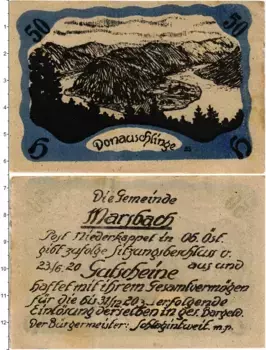 50 50
Donauschlinge
Die Gemeinde
Marsbach
Post Niederkappel in Ob. Öst.
gibt zufolge Sitzungsbeschluß v.
23/5.20 Gutscheine aus und
haftet mit ihrem Gesamtvermögen
für die bis 31/12 20 erfolgende
Einlösung derselben in ges. Bargeld.
Der Bürgermeister: m.p.